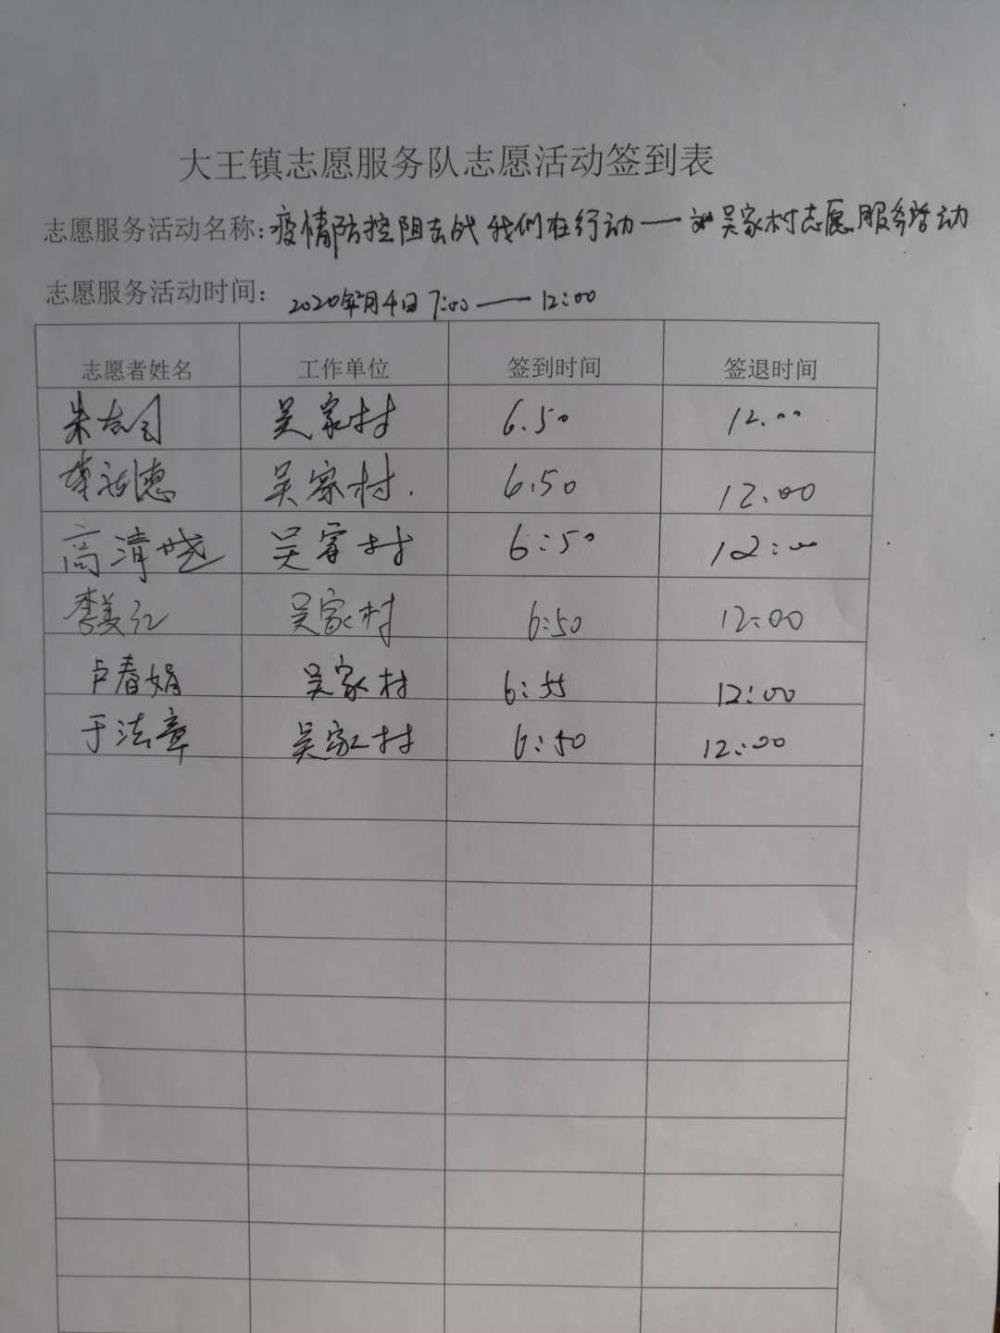 大王镇志愿服务队志愿活动签到表
志愿服务活动名称:疫情防控阻击战 我们在行动——吴家村志愿服务活动
志愿服务活动时间: 2020年2月4日 7:00——12:00
志愿者姓名 工作单位 签到时间 签退时间
朱 吴家村 6.50 12.00
德 吴家村. 6.50 12.00
高清 吴家村 6:50 12:00
李美红 吴家村 6:50 12:00
卢春娟 吴家村 6:55 12:00
于法章 吴家村 6:50 12:00